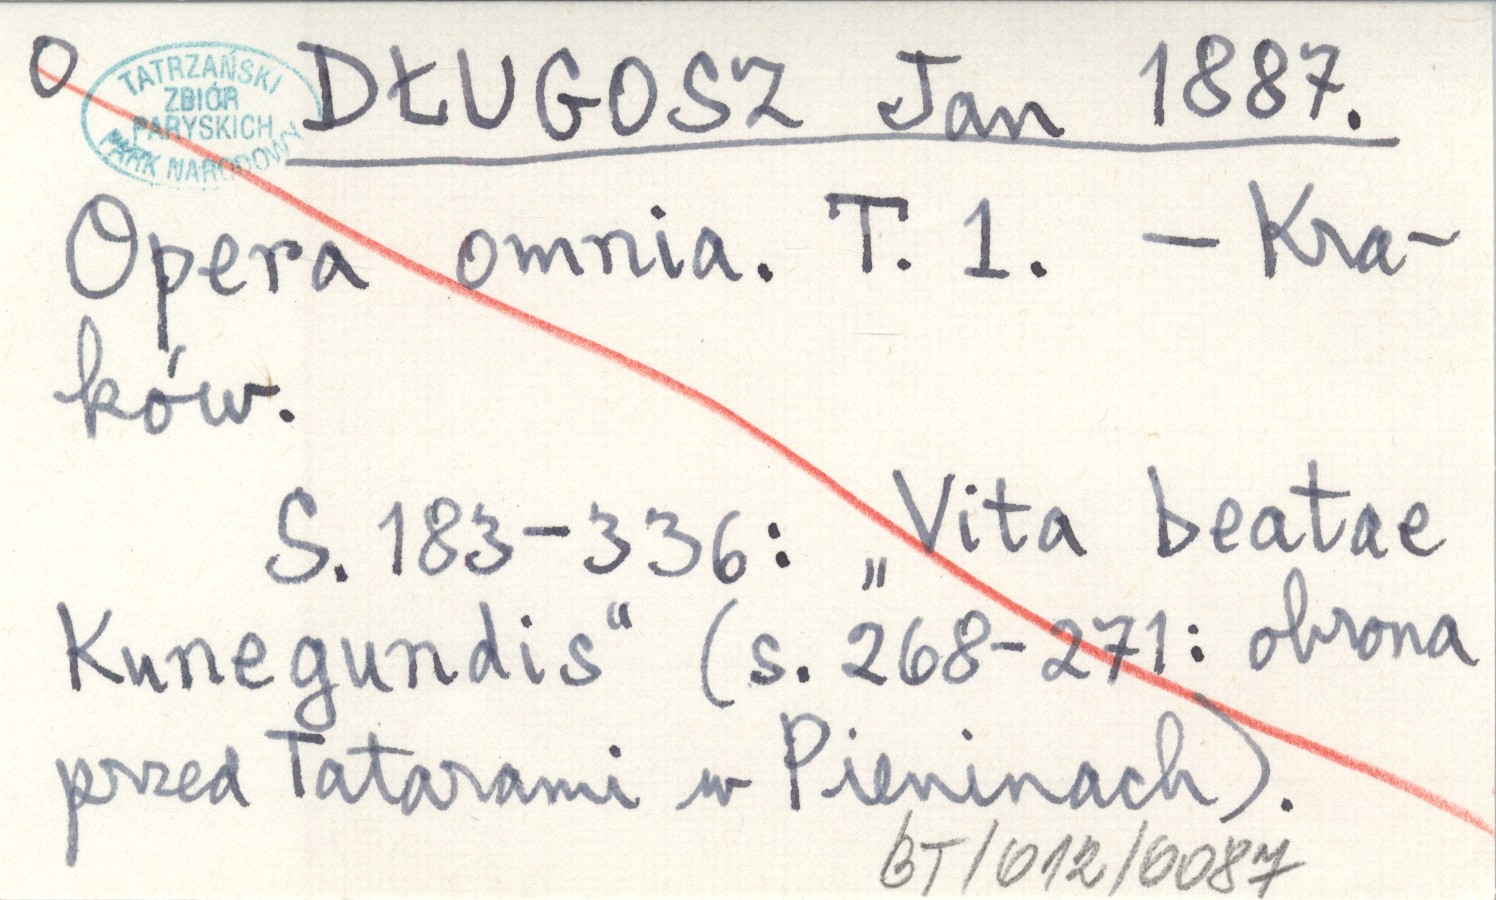 O
TATRZAŃSKI
ZBIÓR
PARYSKICH
PARK NARODOWY
DŁUGOSZ Jan 1887.
Opera omnia. T. 1. – Kra-
ków.
S. 183-336: „Vita beatae
Kunegundis“ (s. 268-271: obrona
przed Tatarami w Pieninach).
BT/012/0087